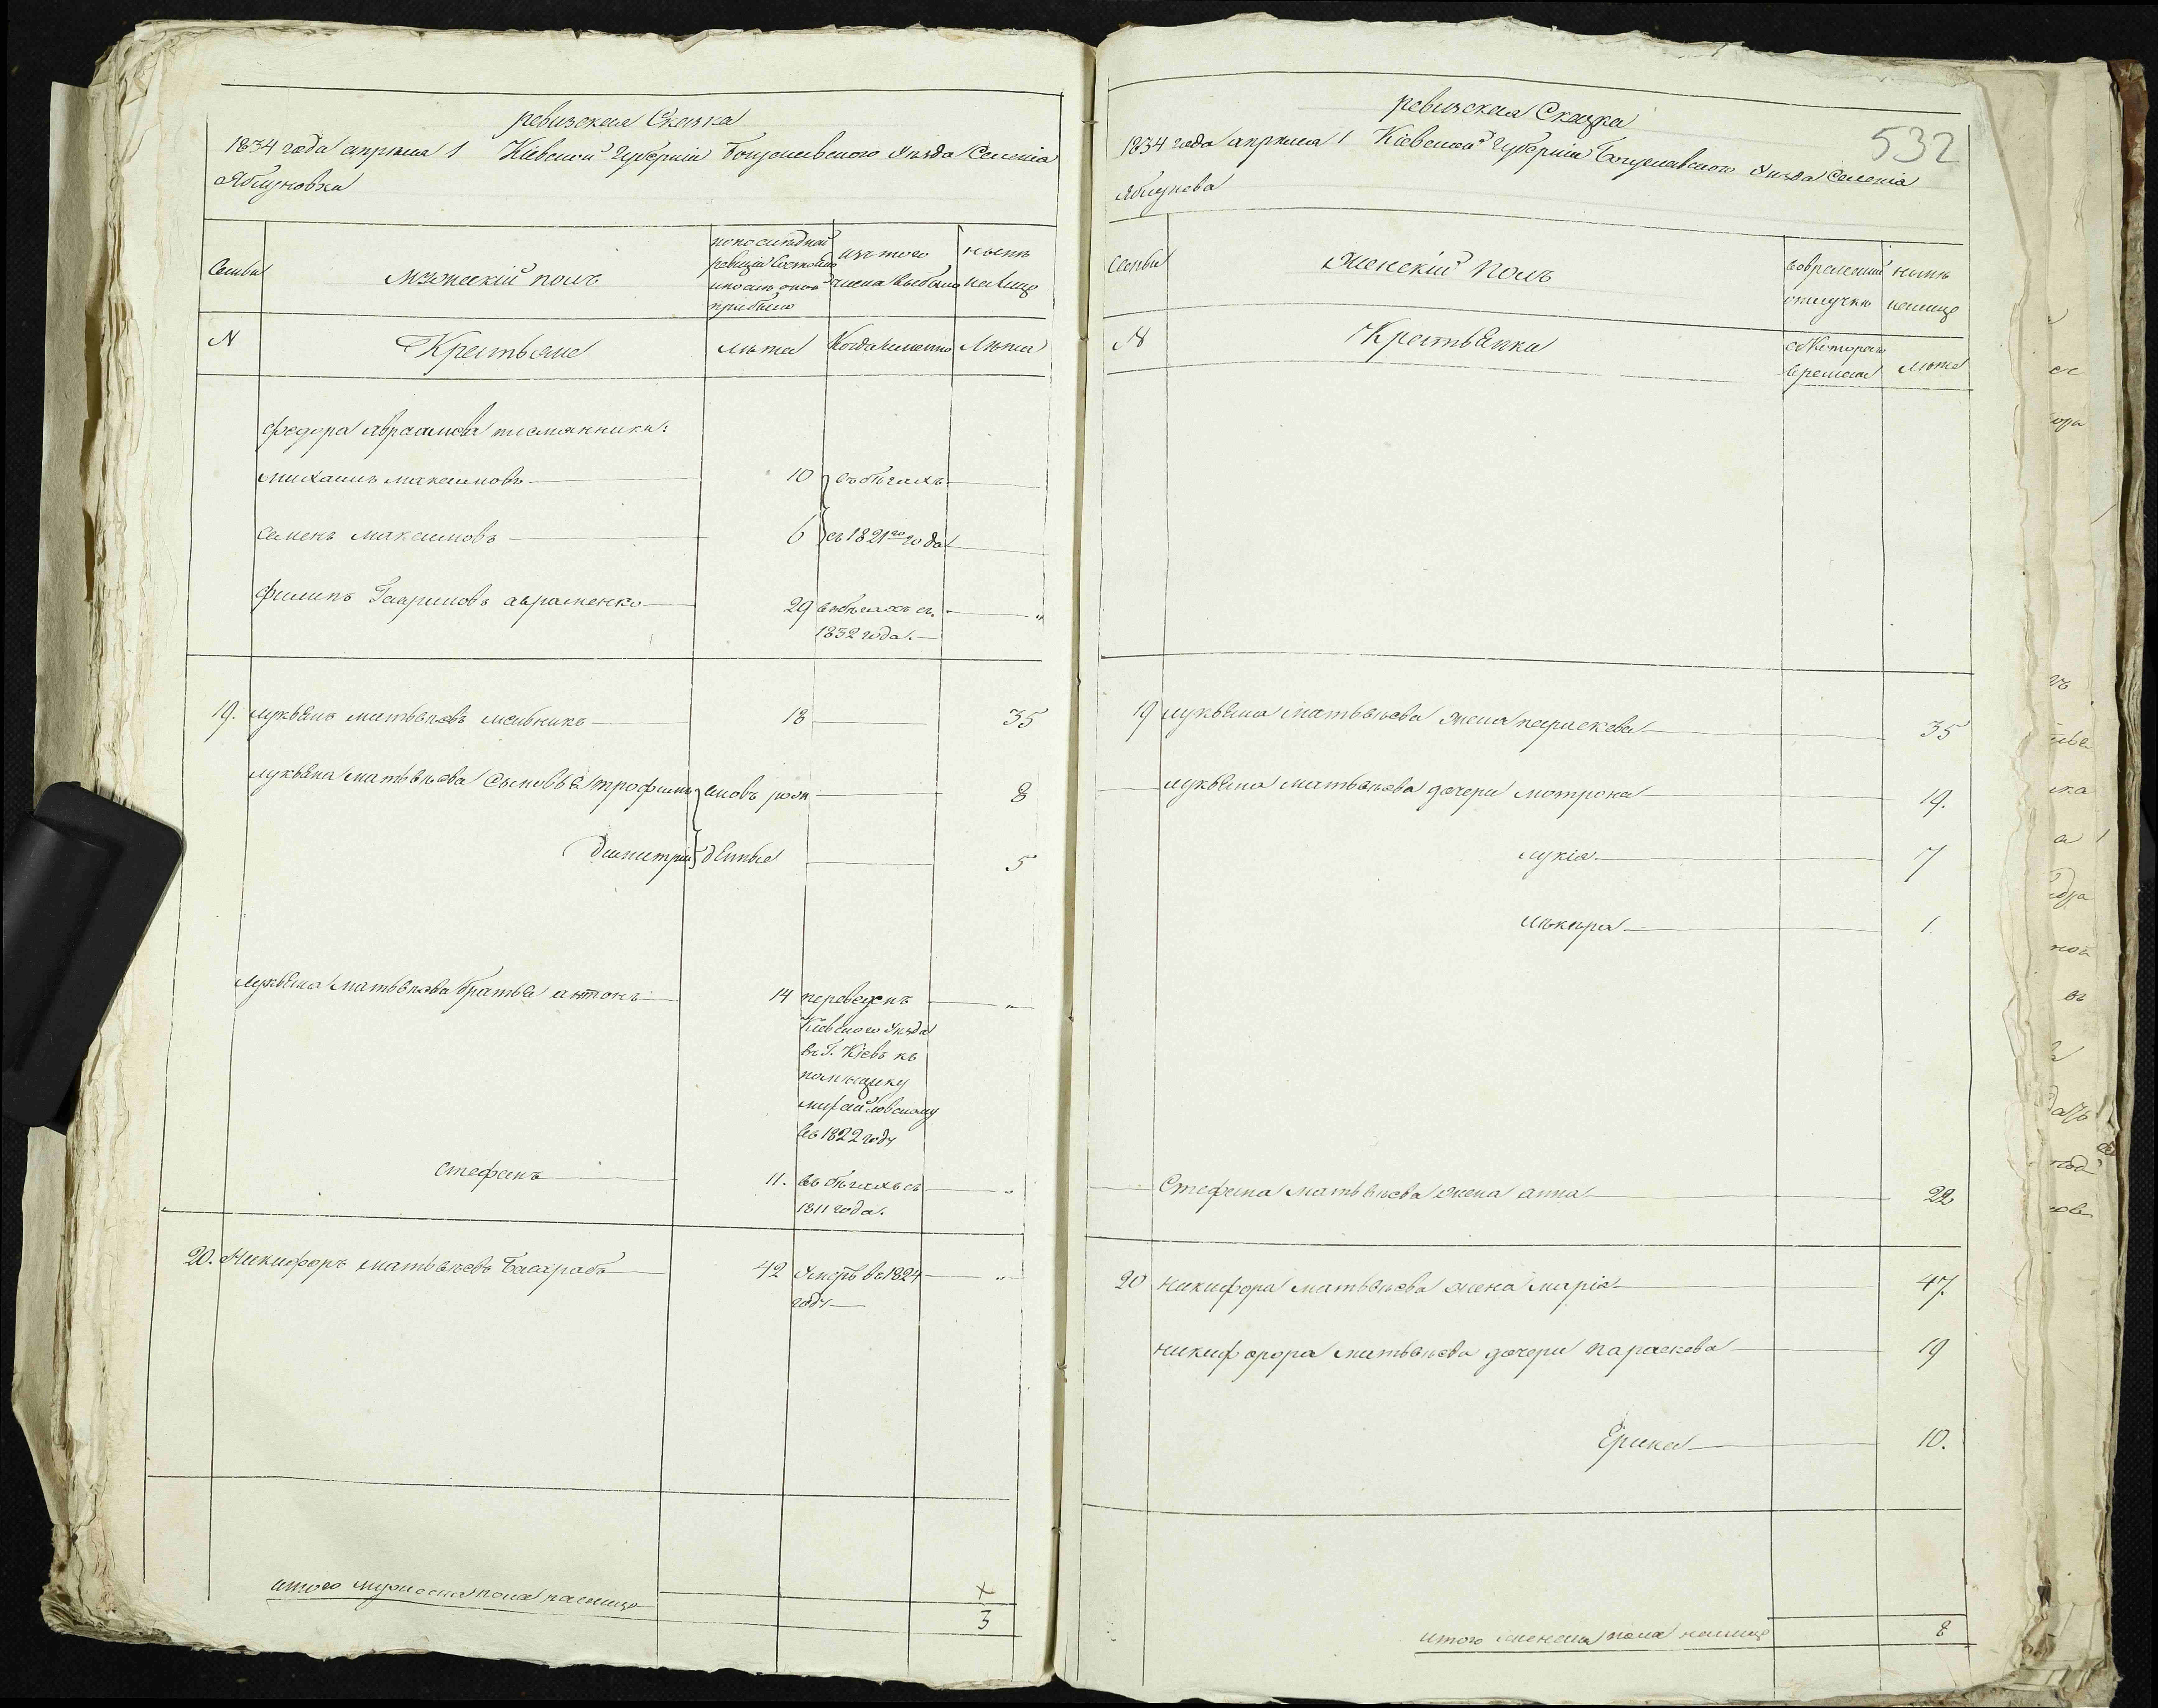 ревизская Сказка
1834 года апрѣля 1 Кіевской Губерніи Богуславского Уѣзда Селенія
Яблуновки
Семьи
Мужескій полъ
попослѣдной
ревизіи Состояло
ипослѣ оной
прибыло
изътого
числа выбыло
нынѣ
налицо
N
Крестьяне
лѣта
Когда именно
Лѣта
федора авраамова племянники:
михаилъ максимовъ 10 въбѣгахъ
семенъ максимовъ 6 съ 1821го года
филипъ Гавриловъ авраменко 29 въбѣгахъ съ „
1832 года.
19. лукьянъ матвѣевъ мельникъ 18 35
лукьяна матвѣева сыновья трофимъ вновь рож 8
димитрій денные 5
лукьяна матвѣева братья антонъ 14 переведенъ „
Кіевского Уѣзда
въ Г. Кіевъ къ
помѣщику
михайловскому
въ 1822 году
стефанъ 11. въ бѣгахъ съ „
1811 года.
20. Никифоръ матвѣевъ Басарабъ 42 Умеръ въ 1824 „
году
итого мужеска пола налицо
+
3
532
ревизская Сказка
1834 года апрѣля 1 Кіевской Губерніи Богуславского Уѣзда Селенія
Яблунова
Семьи
Женскій полъ
вовременной
отлучкѣ
нынѣ
налицо
N
Крестьянки
съ Котораго
времени
лѣта
19 лукьяна матвѣева жена параскева 35
лукьяна матвѣева дочери мотрона 19.
лукіа 7
1
Стефана матвѣева жена анна 22
20 никифора матвѣева жена маріа 47.
никифорора матвѣева дочери параскева 19
10.
итого женска пола налицо 8